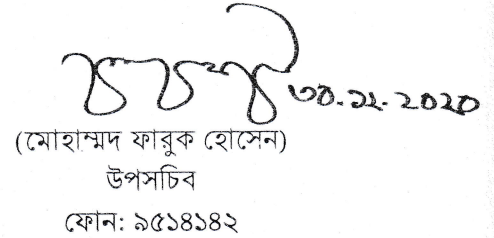 ৩০.১২.2020
(মোহাম্মদ ফারুক হোসেন)
উপসচিব
ফোন: ৯৫১৪১৪২